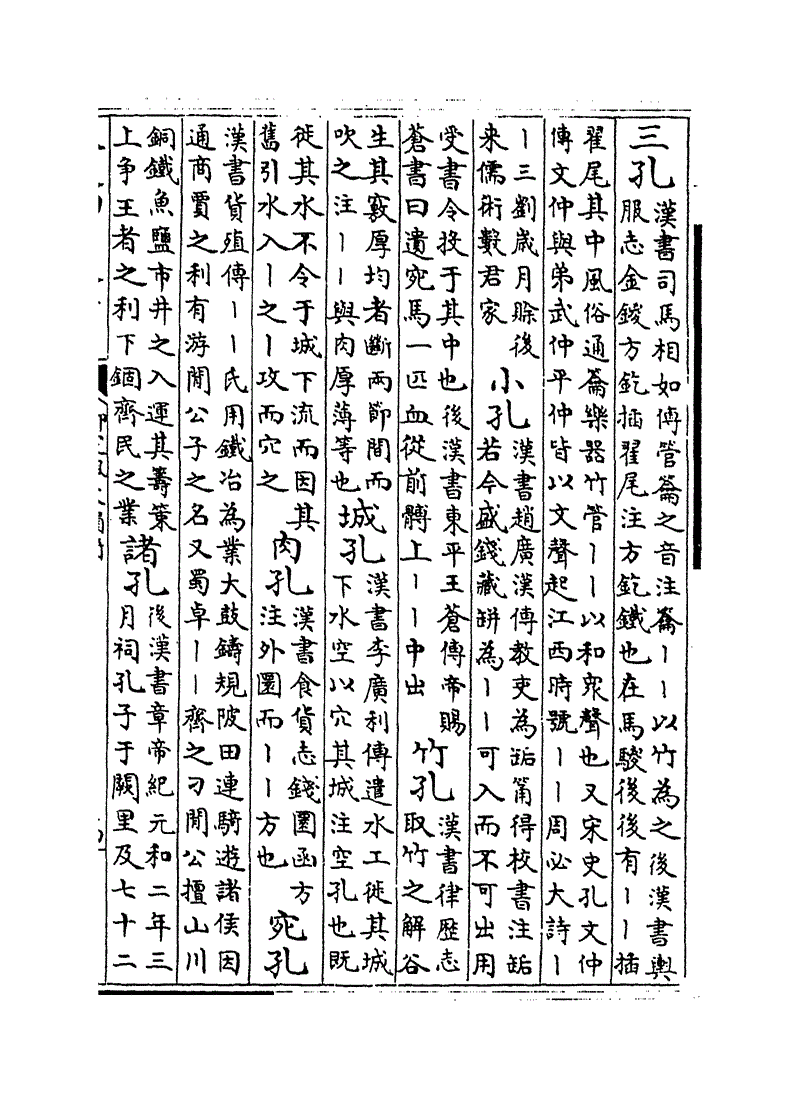 三孔漢書司馬相如傳管籥之音注籥丨丨以竹為之後漢書輿
服志金鍐方釳插翟尾注方釳鐵也在馬騣後後有丨丨插
翟尾其中風俗通籥樂器竹管丨丨以和衆聲也又宋史孔文仲
傳文仲與弟武仲平仲皆以文聲起江西時號丨丨周必大詩丨
丨三劉歲月賒後
来儒術數君家
小孔漢書趙廣漢傳教吏為缿筩得校書注缿
若今盛錢藏缾為丨丨可入而不可出用
受書令投于其中也後漢書東平王蒼傳帝賜
蒼書曰遺宛馬一匹血從前髆上丨丨中出
竹孔漢書律歷志
取竹之解谷
生其竅厚均者斷兩節間而
吹之注丨丨與肉厚薄等也
城孔漢書李廣利傳遣水工徙其城
下水空以穴其城注空孔也既
徙其水不令于城下流而因其
舊引水入丨之丨攻而穴之
肉孔漢書食貨志錢圜函方
注外圜而丨丨方也
宛孔
漢書貨殖傳丨丨氏用鐵冶為業大鼓鑄規陂田連騎遊諸侯因
通商賈之利有游閒公子之名又蜀卓丨丨齊之刁閒公擅山川
銅鐵魚鹽市井之入運其籌策
上争王者之利下錮齊民之業
諸孔後漢書章帝紀元和二年三
月祠孔子于闕里及七十二